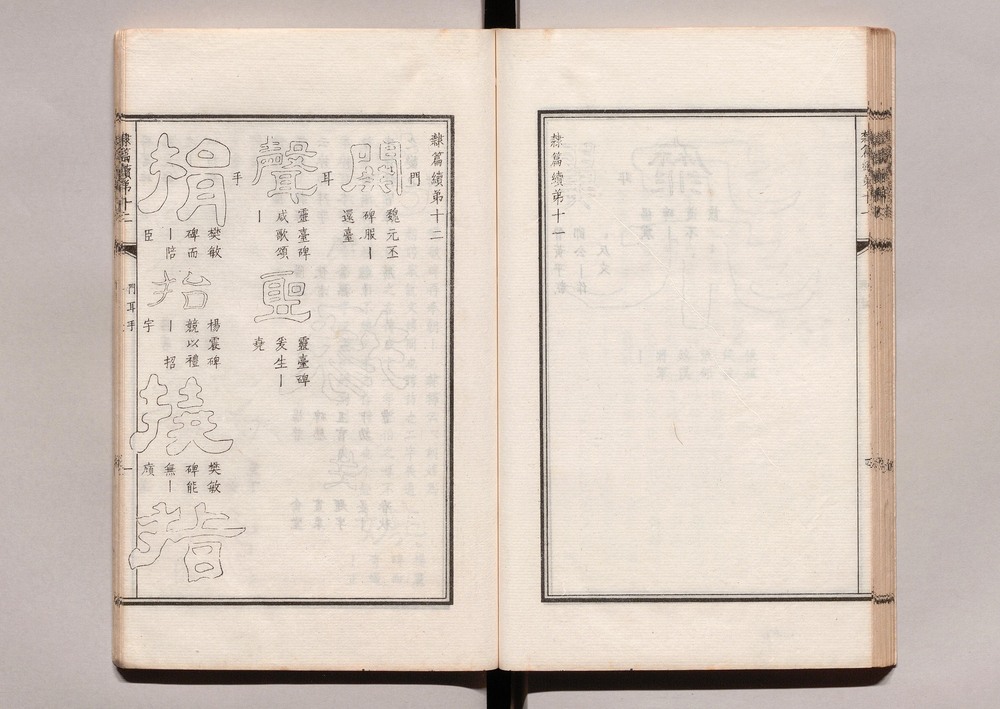 隸篇續第十一
隸篇續第十二
門
開
魏元丕
碑服丨
還臺
耳
聲
靈臺碑
咸歌頌
丨
聖
靈臺碑
爰生丨
堯
手
捐
樊敏
碑而
丨陪
臣
招
楊震碑
競以禮
丨 招
宇
撓
樊敏
碑能
無丨
㩓
隸篇續第十二
門耳手
一